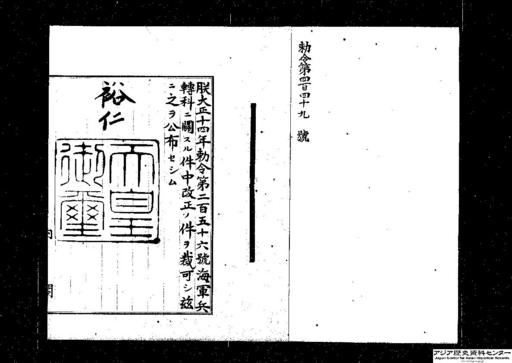 勅令第四百四十九號
朕大正十四年勅令第二百五十六號海軍兵
轉科ニ關スル件中改正ノ件ヲ裁可シ玆
ニ之ヲ公布セシム
裕仁
天皇
御璽
内
閣
アジア歴史資料センター
Japan Center for Asian Historical Records